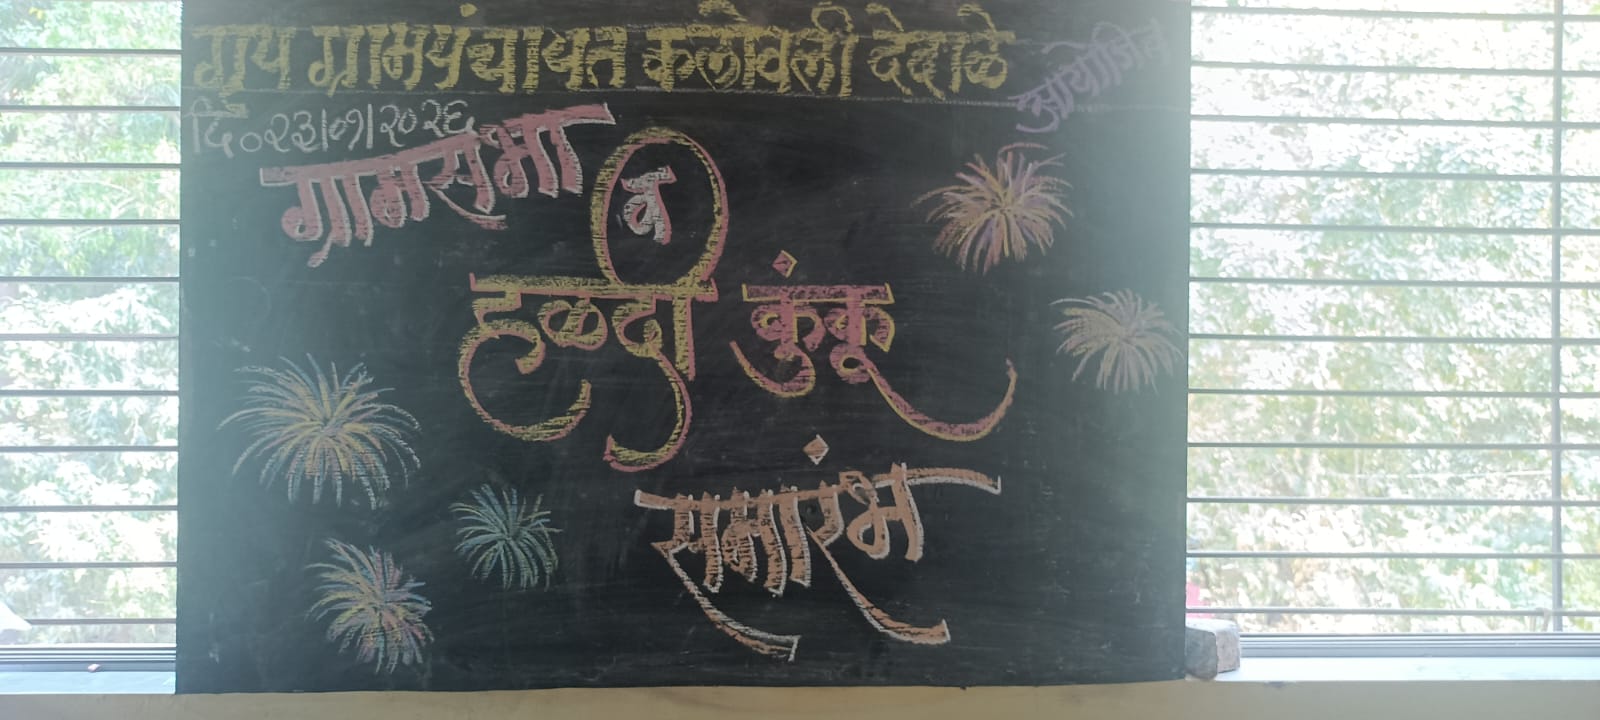 ग्रुप ग्रामपंचायत कलोवली देदाळे
आयोजित
दि०२३/०१/२०२६
ग्रामसभा
व
हळदी कुंकू
समारंभ